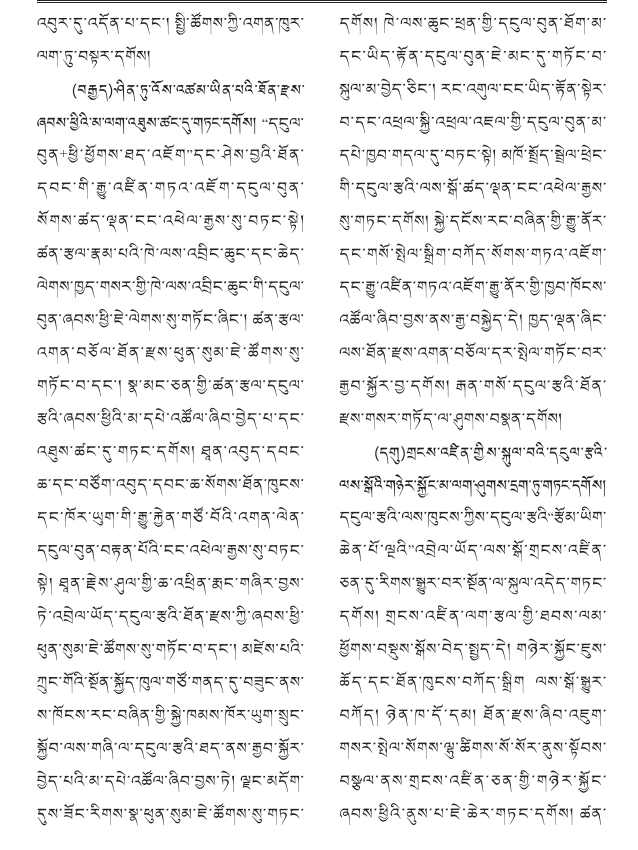 འབུར་དུ་འདོན་པ་དང་། སྤྱི་ཚོགས་ཀྱི་འགན་ཁུར་
ལག་ཏུ་བསྟར་དགོས།
(བརྒྱད)ཤིན་ཏུ་འོས་འཚམ་ཡིན་པའི་ཐོན་རྫས་
ཞབས་ཕྱིའི་མ་ལག་འཐུས་ཚང་དུ་གཏང་དགོས། “དངུལ་
བུན+ཕྱི་ཕྱོགས་ཐད་འཛོག”དང་ཤེས་བྱའི་ཐོན་
དབང་གི་རྒྱུ་འཛིན་གཏའ་འཛོག་དངུལ་བུན་
སོགས་ཚད་ལྡན་ངང་འཕེལ་རྒྱས་སུ་བཏང་སྟེ།
ཚན་རྩལ་རྣམ་པའི་ཁེ་ལས་འབྲིང་ཆུང་དང་ཆེད་
ལེགས་ཁྱད་གསར་གྱི་ཁེ་ལས་འབྲིང་ཆུང་གི་དངུལ་
བུན་ཞབས་ཕྱི་ཇེ་ལེགས་སུ་གཏོང་ཞིང་། ཚན་རྩལ་
འགན་བཅོལ་ཐོན་རྫས་ཕུན་སུམ་ཇེ་ཚོགས་སུ་
གཏོང་བ་དང་། སྣ་མང་ཅན་གྱི་ཚན་རྩལ་དངུལ་
རྩའི་ཞབས་ཕྱིའི་མ་དཔེ་འཚོལ་ཞིབ་བྱེད་པ་དང་
འཐུས་ཚང་དུ་གཏང་དགོས། ཐྲན་འབུད་དབང་
ཆ་དང་བཙོག་འབུད་དབང་ཆ་སོགས་ཐོན་ཁུངས་
དང་ཁོར་ཡུག་གི་རྒྱུ་རྐྱེན་གཙོ་བོའི་འགན་ལེན་
དངུལ་བུན་བརྟན་པོའི་ངང་འཕེལ་རྒྱས་སུ་བཏང་
སྟེ། ཐྲན་རྗེས་ཤུལ་གྱི་ཆ་འཕྲིན་རྨང་གཞིར་བྱས་
ཏེ་འབྲེལ་ཡོད་དངུལ་རྩའི་ཐོན་རྫས་ཀྱི་ཞབས་ཕྱི་
ཕུན་སུམ་ཇེ་ཚོགས་སུ་གཏོང་བ་དང་། མཛེས་པའི་
ཀྲུང་གོའི་སྔོན་སྐྱོད་ཁུལ་གཙོ་གནད་དུ་བཟུང་ནས་
ས་ཁོངས་རང་བཞིན་གྱི་སྐྱེ་ཁམས་ཁོར་ཡུག་སྲུང་
སྐྱོབ་ལས་གཞི་ལ་དངུལ་རྩའི་ཐད་ནས་རྒྱབ་སྐྱོར་
བྱེད་པའི་མ་དཔེ་འཚོལ་ཞིབ་བྱས་ཏེ། ལྗང་མདོག་
དུས་ཟོང་རིགས་སྣ་ཕུན་སུམ་ཇེ་ཚོགས་སུ་གཏང་
དགོས། ཁེ་ལས་ཆུང་ཕྲན་གྱི་དངུལ་བུན་ཐོག་མ་
དང་ཡིད་རྟོན་དངུལ་བུན་ཇེ་མང་དུ་གཏོང་བ་
སྐུལ་མ་བྱེད་ཅིང་། རང་འགུལ་ངང་ཡིད་རྟོན་སྟེར་
བ་དང་འཕྲལ་སྐྱི་འཕྲལ་འཇལ་གྱི་དངུལ་བུན་མ་
དཔེ་ཁྱབ་གདལ་དུ་བཏང་སྟེ། མཁོ་སྤྲོད་སྦྲེལ་ཕྲེང་
གི་དངུལ་རྩའི་ལས་སྒོ་ཚད་ལྡན་ངང་འཕེལ་རྒྱས་
སུ་གཏང་དགོས། སྐྱེ་དངོས་རང་བཞིན་གྱི་རྒྱུ་ནོར་
དང་གསོ་སྤེལ་སྒྲིག་བཀོད་སོགས་གཏའ་འཛོག་
དང་རྒྱུ་འཛིན་གཏའ་འཛོག་རྒྱུ་ནོར་གྱི་ཁྱབ་ཁོངས་
འཚོལ་ཞིབ་བྱས་ནས་རྒྱ་བསྐྱེད་དེ། ཁྱད་ལྡན་ཞིང་
ལས་ཐོན་རྫས་འགན་བཅོལ་དར་སྤེལ་གཏོང་བར་
རྒྱབ་སྐྱོར་བྱ་དགོས། རྒན་གསོ་དངུལ་རྩའི་ཐོན་
རྫས་གསར་གཏོད་ལ་ཤུགས་བསྣན་དགོས།
(དགུ)གྲངས་འཛིན་གྱིས་སྐུལ་བའི་དངུལ་རྩའི་
ལས་སྒོའི་གཉེར་སྐྱོང་མ་ལག་ཤུགས་དྲག་ཏུ་གཏང་དགོས།
དངུལ་རྩའི་ལས་ཁུངས་ཀྱིས་དངུལ་རྩའི“རྩོམ་ཡིག་
ཆེན་པོ་ལྔའི”འབྲེལ་ཡོད་ལས་སྒོ་གྲངས་འཛིན་
ཅན་དུ་རིགས་སྒྱུར་བར་སྔོན་ལ་སྐུལ་འདེད་གཏང་
དགོས། གྲངས་འཛིན་ལག་རྩལ་གྱི་ཐབས་ལམ་
ཕྱོགས་བསྡུས་སྒོས་བེད་སྤྱད་དེ། གཉེར་སྐྱོང་དུས་
ཚོད་དང་ཐོན་ཁུངས་བཀོད་སྒྲིག ལས་སྒོ་སྒྱུར་
བཀོད། ཉེན་ཁ་དོ་དམ། ཐོན་རྫས་ཞིབ་འཇུག་
གསར་སྤེལ་སོགས་ལྷུ་ཚིགས་སོ་སོར་ནུས་སྟོབས་
བསྩལ་ནས་གྲངས་འཛིན་ཅན་གྱི་གཉེར་སྐྱོང་
ཞབས་ཕྱིའི་ནུས་པ་ཇེ་ཆེར་གཏང་དགོས། ཚན་